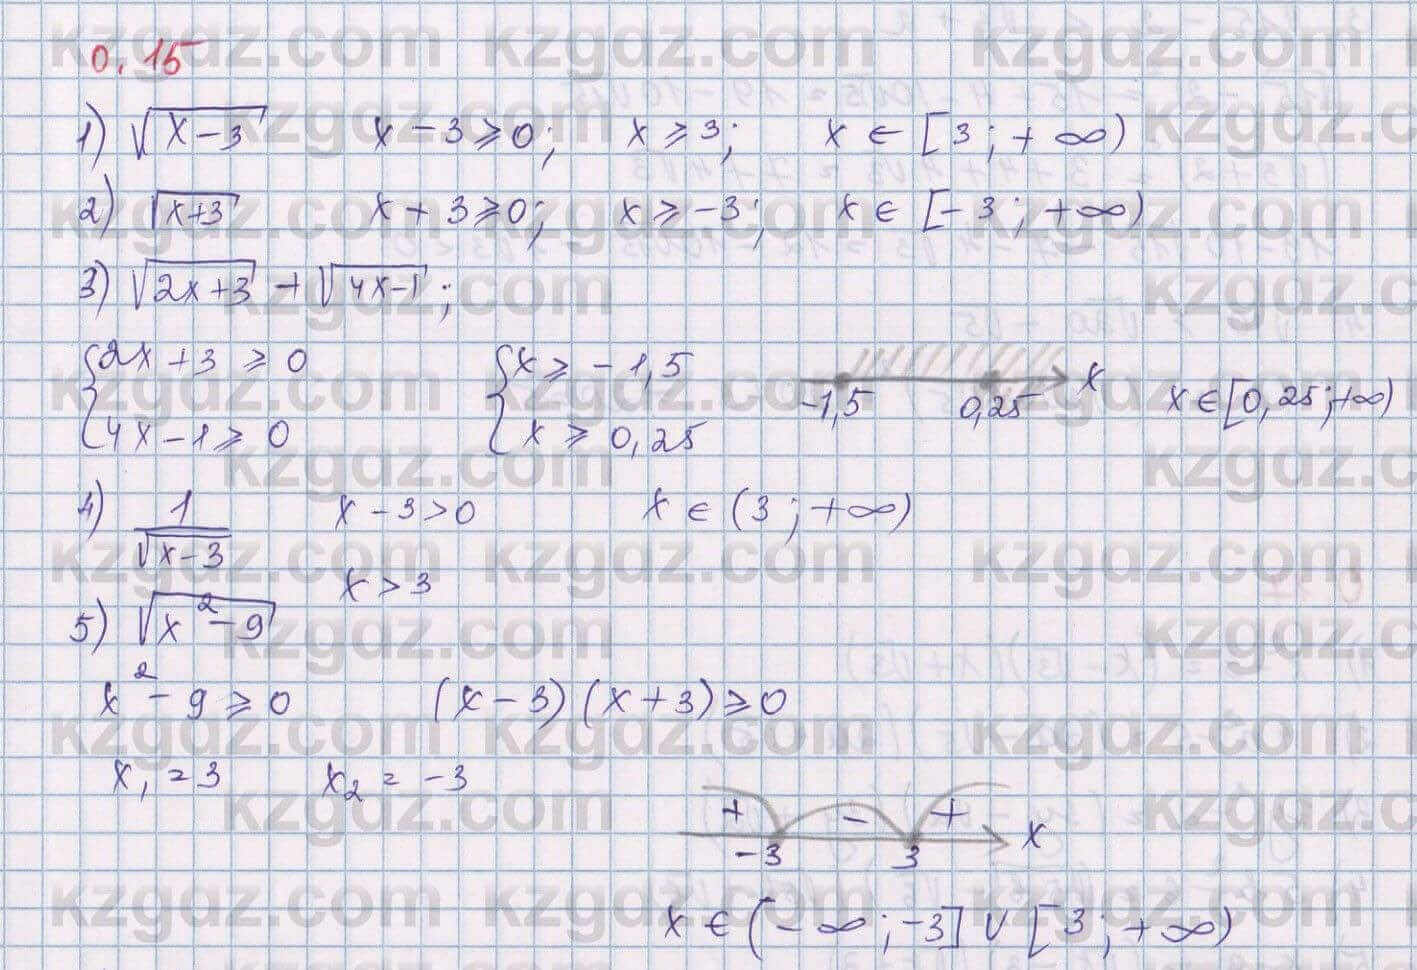 0.15
1) √(x-3)   x-3⩾0;   x⩾3;   x∈[3;+∞)
2) √(x+3)   x+3⩾0;   x⩾-3;   x∈[-3;+∞)
3) √(2x+3) + √(4x-1);
{2x+3⩾0   {x⩾-1,5   -1,5   0,25   x   x∈[0,25;+∞)
{4x-1⩾0   {x⩾0,25
4) 1/√(x-3)   x-3>0   x∈(3;+∞)
x>3
5) √(x²-9)
x²-9⩾0   (x-3)(x+3)⩾0
x₁=3   x₂=-3
+ - +
-3   3   x
x∈(-∞;-3]∪[3;+∞)
kzgdz.com